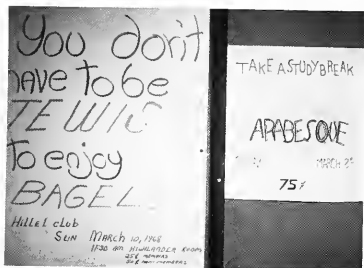 You don't
have to be
JEWIS
to enjoy
BAGEL
Hillel club
SUN MARCH 10, 1968
11:30 AM HIGHLANDER ROOM
25¢ MEMBERS
50¢ NON MEMBERS
TAKE A STUDY BREAK
ARABESQUE
MARCH
75¢